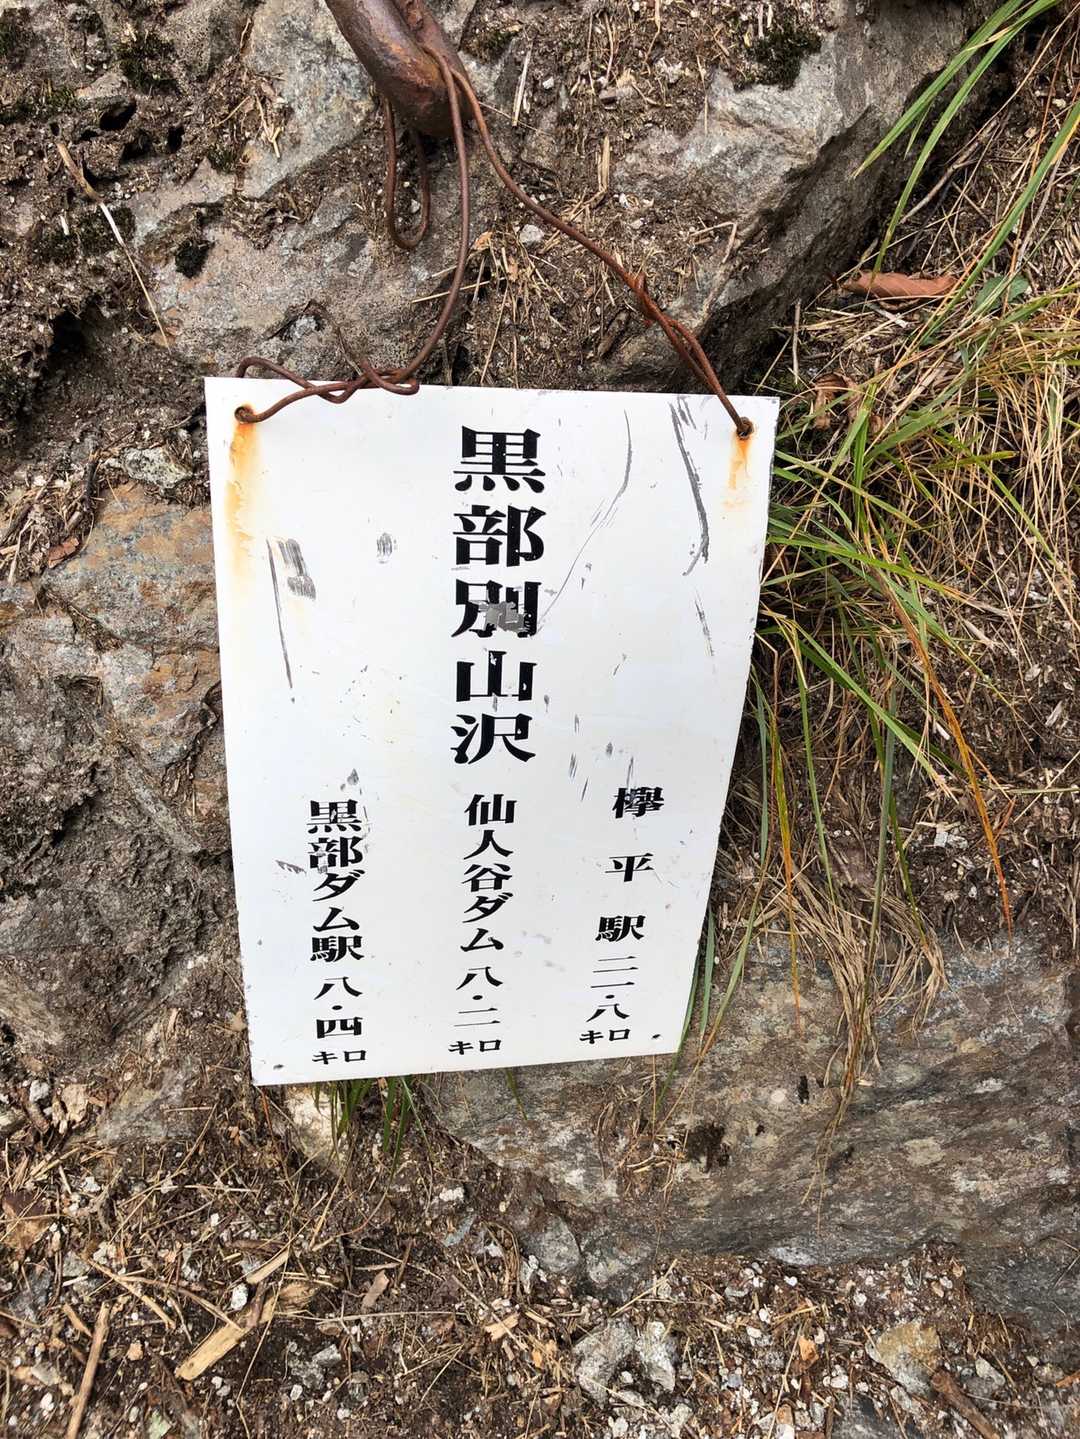 黒部別山沢
欅平駅 二一・八キロ
仙人谷ダム 八・二キロ
黒部ダム駅 八・四キロ